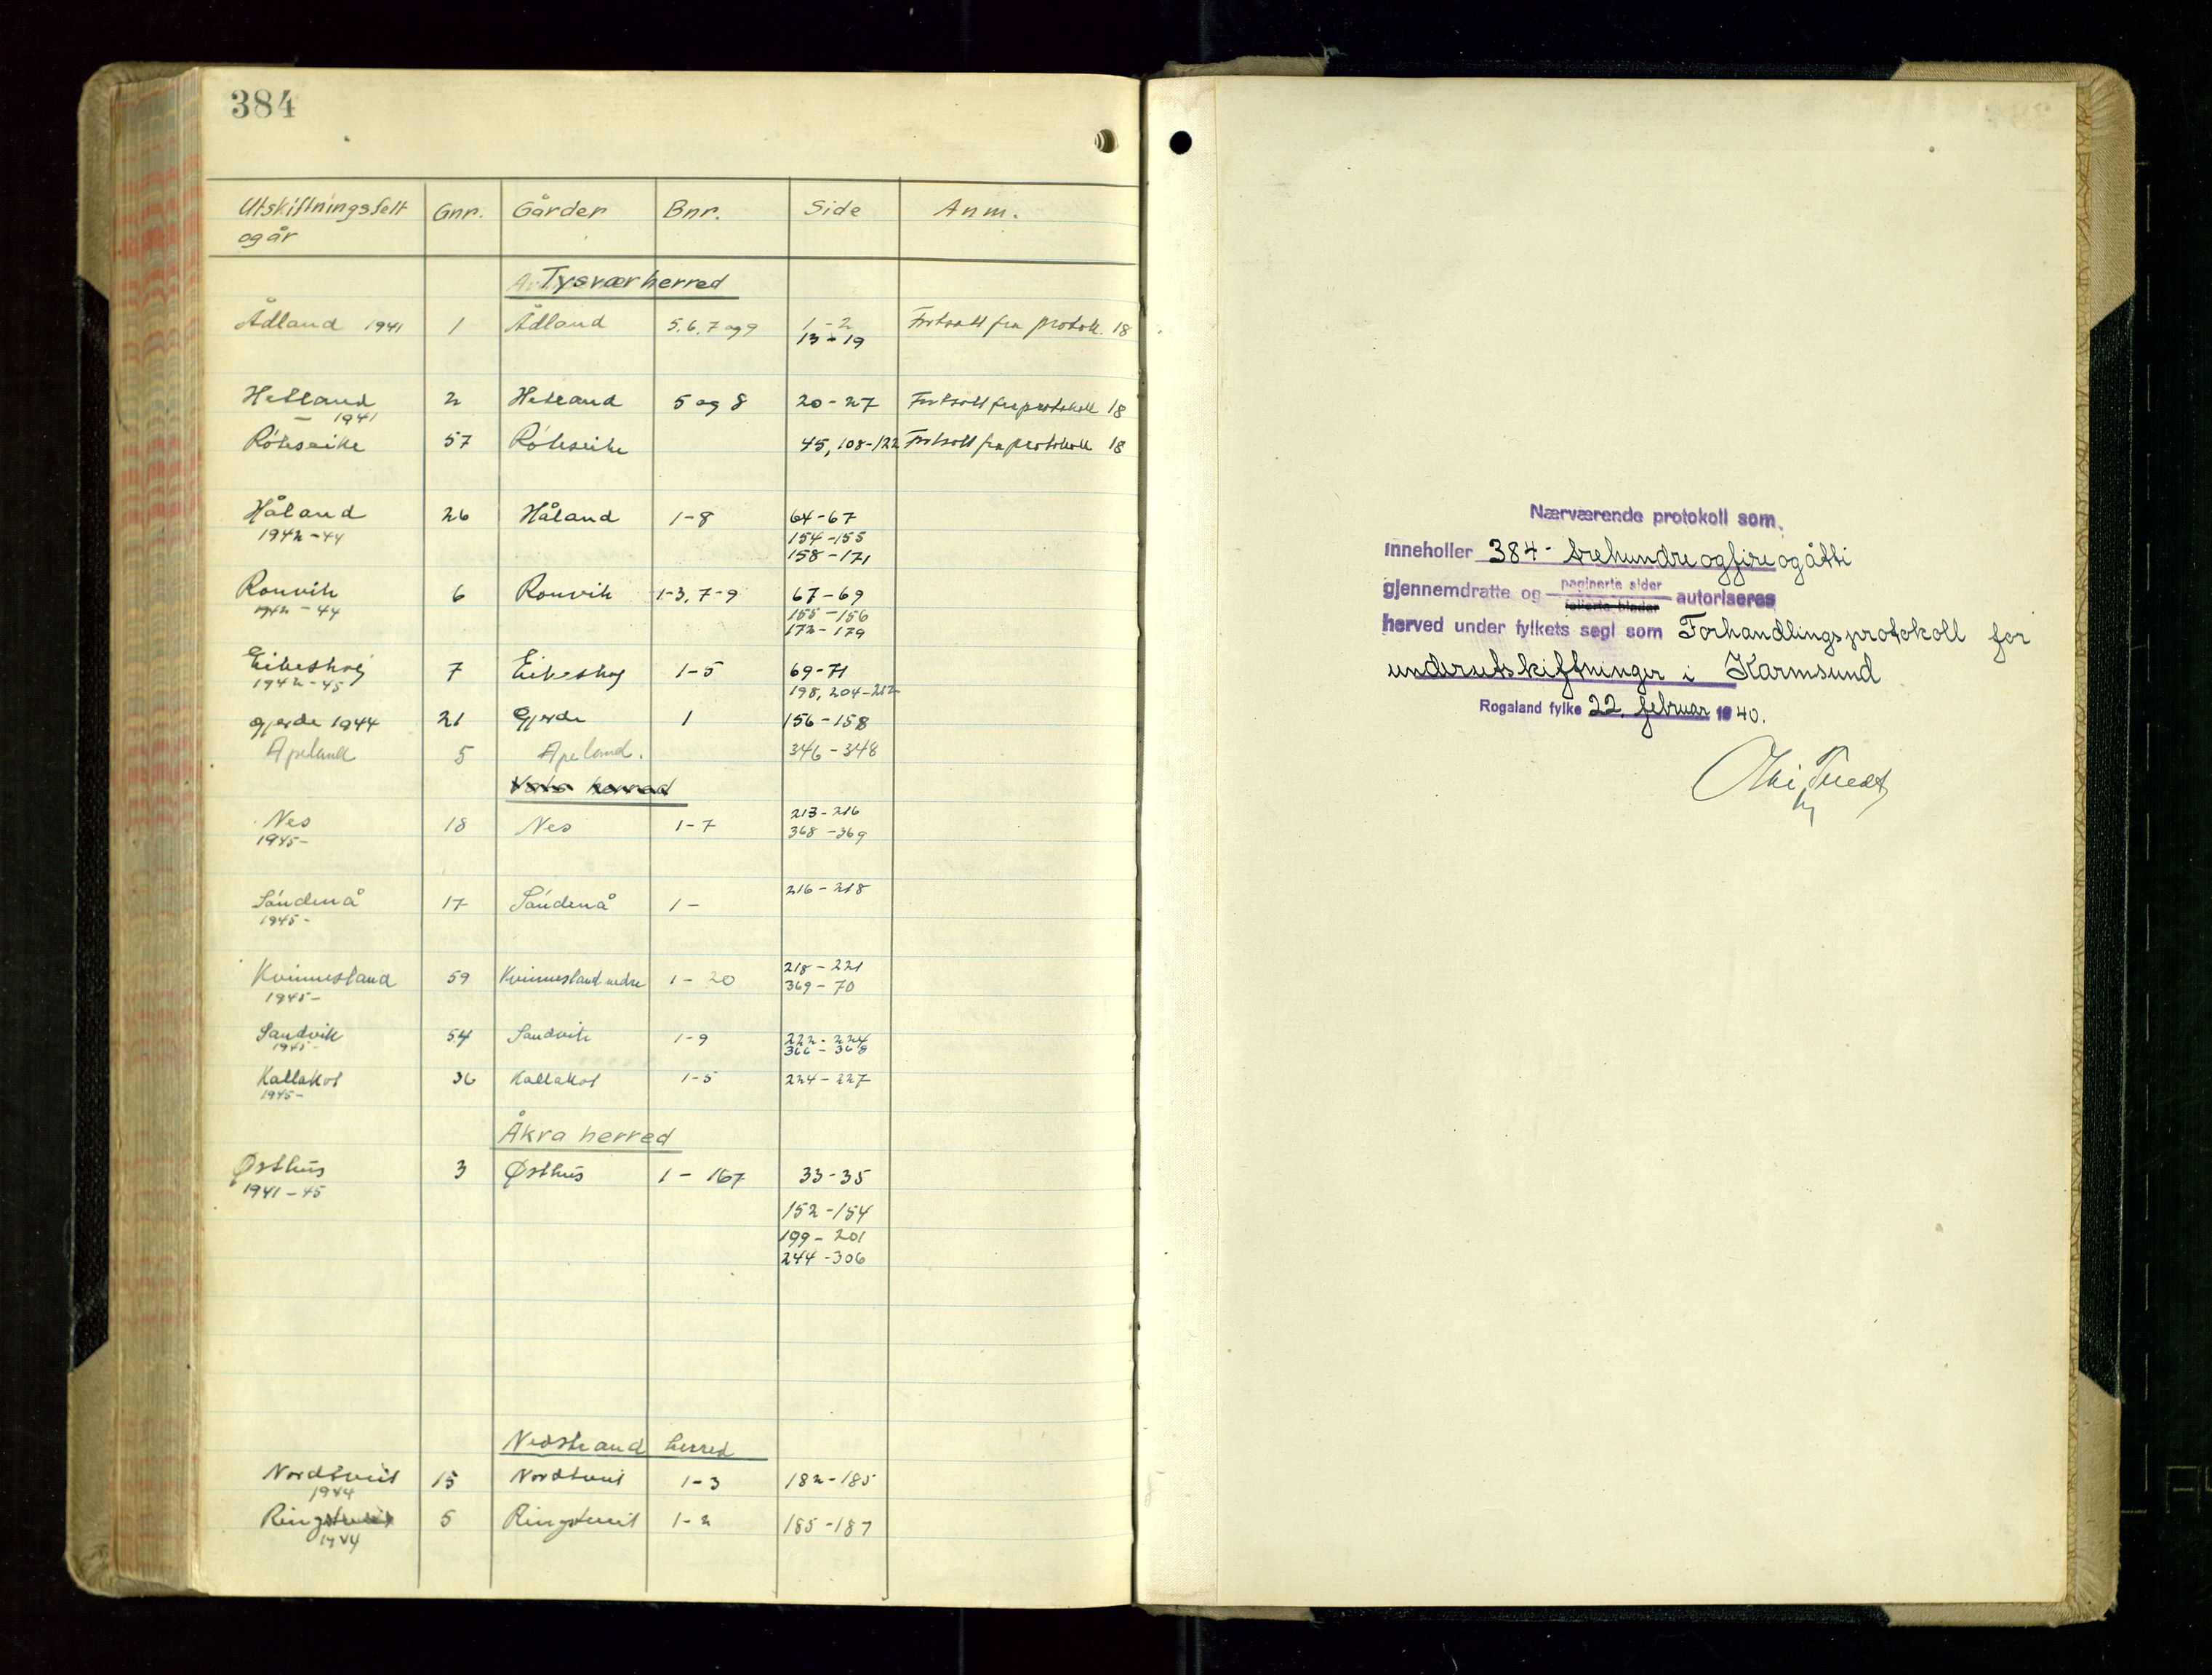 384
Utskiftningsfelt Gnr. Gårder Bnr. Side Anm.
og år
Tysvær herred
Ådland 1941 1 Ådland 5, 6, 7 og 9 1-2 Fortsatt fra protok. 18
13-19
Hetland 2 Hetland 5 og 8 20-27 Fortsatt fra protokoll 18
- 1941
Röteseike 57 Röteseike 45, 108-122 Fortsatt fra protokoll 18
Håland 26 Håland 1-8 64-67
1942-44 154-155
158-171
Rønvik 6 Rønvik 1-3, 7-9 67-69
1942-44 155-156
172-179
Eikeskog 7 Eikeskog 1-5 69-71
1942-45 198, 204-212
Gjerde 1944 21 Gjerde 1 156-158
Apeland 5 Apeland. 346-348
herred
Nes 18 Nes 1-7 213-216
1945- 368-369
Söndenå 17 Söndenå 1- 216-218
1945-
Kvinnesland 59 Kvinnesland nedre 1-20 218-221
1945- 369-70
Sandvik 54 Sandvik 1-9 222-224
1945- 366-368
Kallekot 36 Kallekot 1-5 224-227
1945-
Åkra herred
Østhus 3 Østhus 1-167 33-35
1941-45
152-154
199-201
244-306
Nedstrand herred
Nordtveit 15 Nordtveit 1-3 182-185
1944
Ringstveit 5 Ringstveit 1-2 185-187
1944
Nærværende protokoll som
inneholler 384- trehundreogfireogåtti
gjennemdratte og paginerte sider autoriseres
folierte blader
herved under fylkets segl som Forhandlingsprotokoll for
underutskiftninger i Karmsund
Rogaland fylke 22. februar 1940.